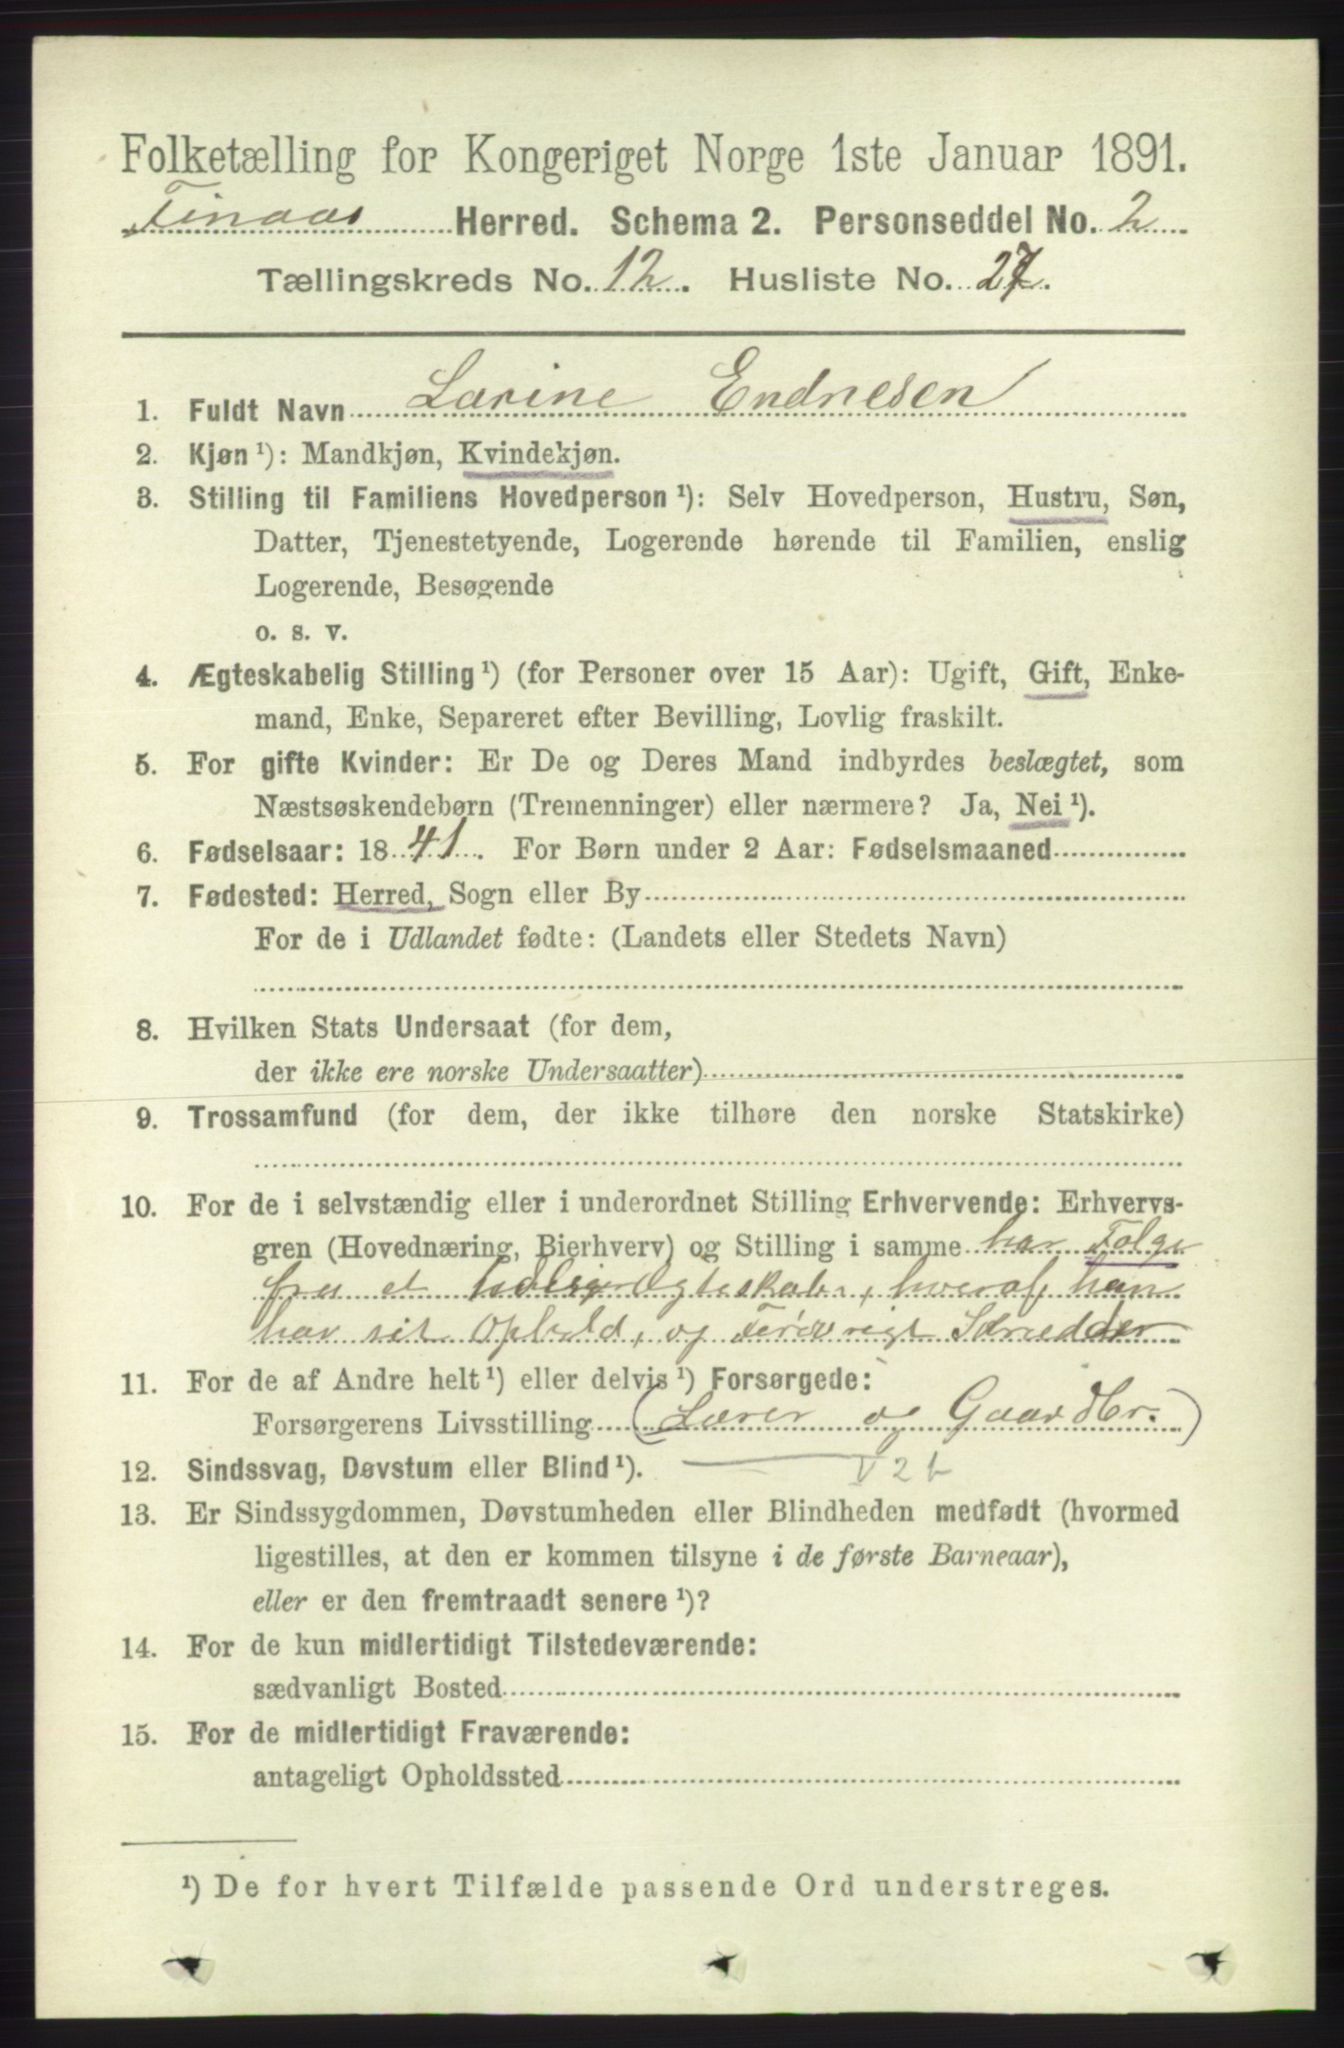 Folketælling for Kongeriget Norge 1ste Januar 1891.
Finaas Herred. Schema 2. Personseddel No. 2
Tællingskreds No. 12. Husliste No. 27.
1. Fuldt Navn Larine Endresen
2. Kjøn ¹): Mandkjøn, Kvindekjøn.
3. Stilling til Familiens Hovedperson ¹): Selv Hovedperson, Hustru, Søn,
Datter, Tjenestetyende, Logerende hørende til Familien, enslig
Logerende, Besøgende
o. s. v.
4. Ægteskabelig Stilling ¹) (for Personer over 15 Aar): Ugift, Gift, Enke-
mand, Enke, Separeret efter Bevilling, Lovlig fraskilt.
5. For gifte Kvinder: Er De og Deres Mand indbyrdes beslægtet, som
Næstsøskendebørn (Tremenninger) eller nærmere? Ja, Nei ¹).
6. Fødselsaar: 1841. For Børn under 2 Aar: Fødselsmaaned
7. Fødested: Herred, Sogn eller By
For de i Udlandet fødte: (Landets eller Stedets Navn)
8. Hvilken Stats Undersaat (for dem,
der ikke ere norske Undersaatter)
9. Trossamfund (for dem, der ikke tilhøre den norske Statskirke)
10. For de i selvstændig eller i underordnet Stilling Erhvervende: Erhvervs-
gren (Hovednæring, Bierhverv) og Stilling i samme har Følge
fra et tidligere Ægteskab, hveraf hun
har sit Ophold, og
11. For de af Andre helt ¹) eller delvis ¹) Forsørgede:
Forsørgerens Livsstilling (Lærer og Gaardbr.)
12. Sindssvag, Døvstum eller Blind ¹).
13. Er Sindssygdommen, Døvstumheden eller Blindheden medfødt (hvormed
ligestilles, at den er kommen tilsyne i de første Barneaar),
eller er den fremtraadt senere ¹)?
14. For de kun midlertidigt Tilstedeværende:
sædvanligt Bosted
15. For de midlertidigt Fraværende:
antageligt Opholdssted
¹) De for hvert Tilfælde passende Ord understreges.